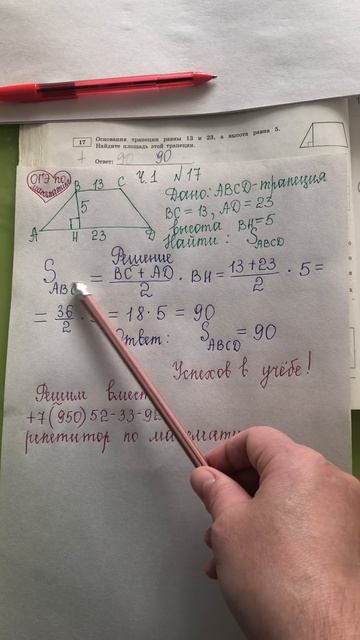 17 Основания трапеции равны 13 и 23, а высота равна 5.
Найдите площадь этой трапеции.
Ответ: 90
ОГЭ по математике
Ч.1 N17
B 13 C
5
A H 23 D
Дано: ABCD-трапеция
BC = 13, AD = 23
высота BH = 5
Найти: S ABCD
Решение
S ABC = BC + AD / 2 · BH = 13 + 23 / 2 · 5 =
= 36 / 2 · = 18 · 5 = 90
Ответ: S ABCD = 90
Успехов в учёбе!
Решим
+7(950)52-33-9
репетитор по